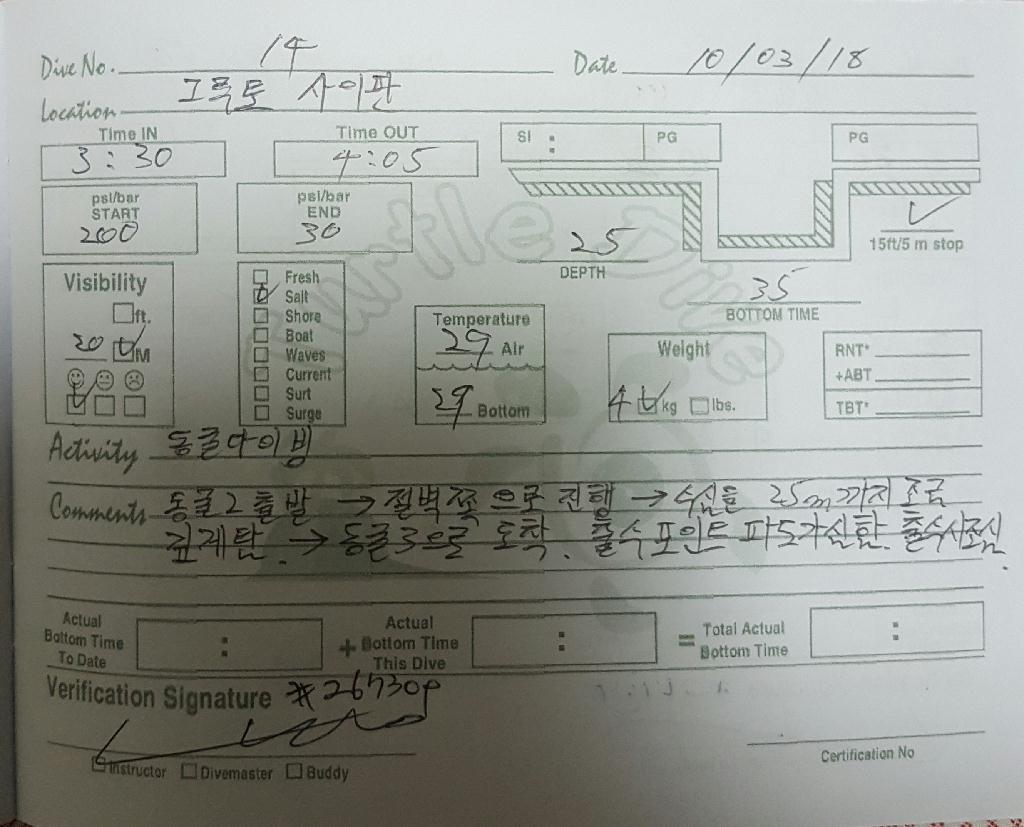 Dive No. 14 Date 10/03/18
Location 그룩토 사이판
Time IN Time OUT SI : PG PG
3:30 4:05
psi/bar START 200 psi/bar END 30
25 DEPTH
15ft/5 m stop
35 BOTTOM TIME
Visibility
ft.
20 M
Fresh
Salt
Shore
Boat
Waves
Current
Surt
Surge
Temperature
29 Air
29 Bottom
Weight
4 kg lbs.
RNT*
+ABT
TBT*
Turtle Dive
Activity 동굴다이빙
Comments 동굴2출발 → 절벽쪽으로 진행 → 수심을 25m까지 조금
깊게탐. → 동굴3으로 도착. 출수포인트 파도가심함. 출수시조심.
Actual Bottom Time To Date : + Actual Bottom Time This Dive : = Total Actual Bottom Time :
Verification Signature #26730p
Instructor Divemaster Buddy
Certification No